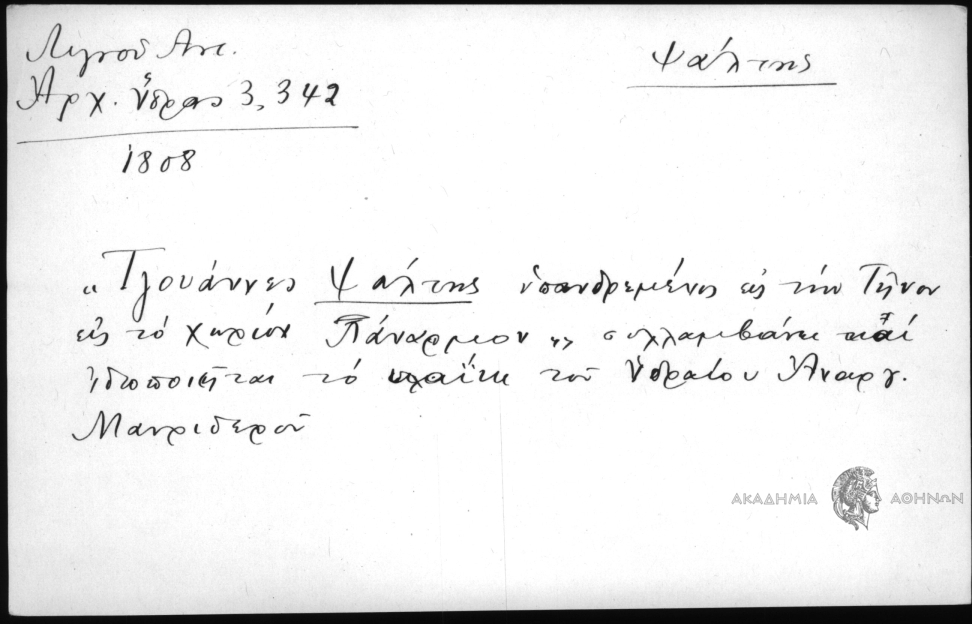 Λιγνοῦ Αντ.
Ἀρχ. Ὕδρας 3, 342
1808
Ψάλτης
"Τζουάννες Ψάλτης ὑπανδρεμένος εἰς τὴν Τῆνον
εἰς τὸ χωρίον Πάναρμον" συλλαμβάνει καὶ
ἰδιοποιεῖται τὸ καΐκι τοῦ Ὑδραίου Ἀναργ.
Μανριδεροῦ
ΑΚΑΔΗΜΙΑ ΑΘΗΝΩΝ